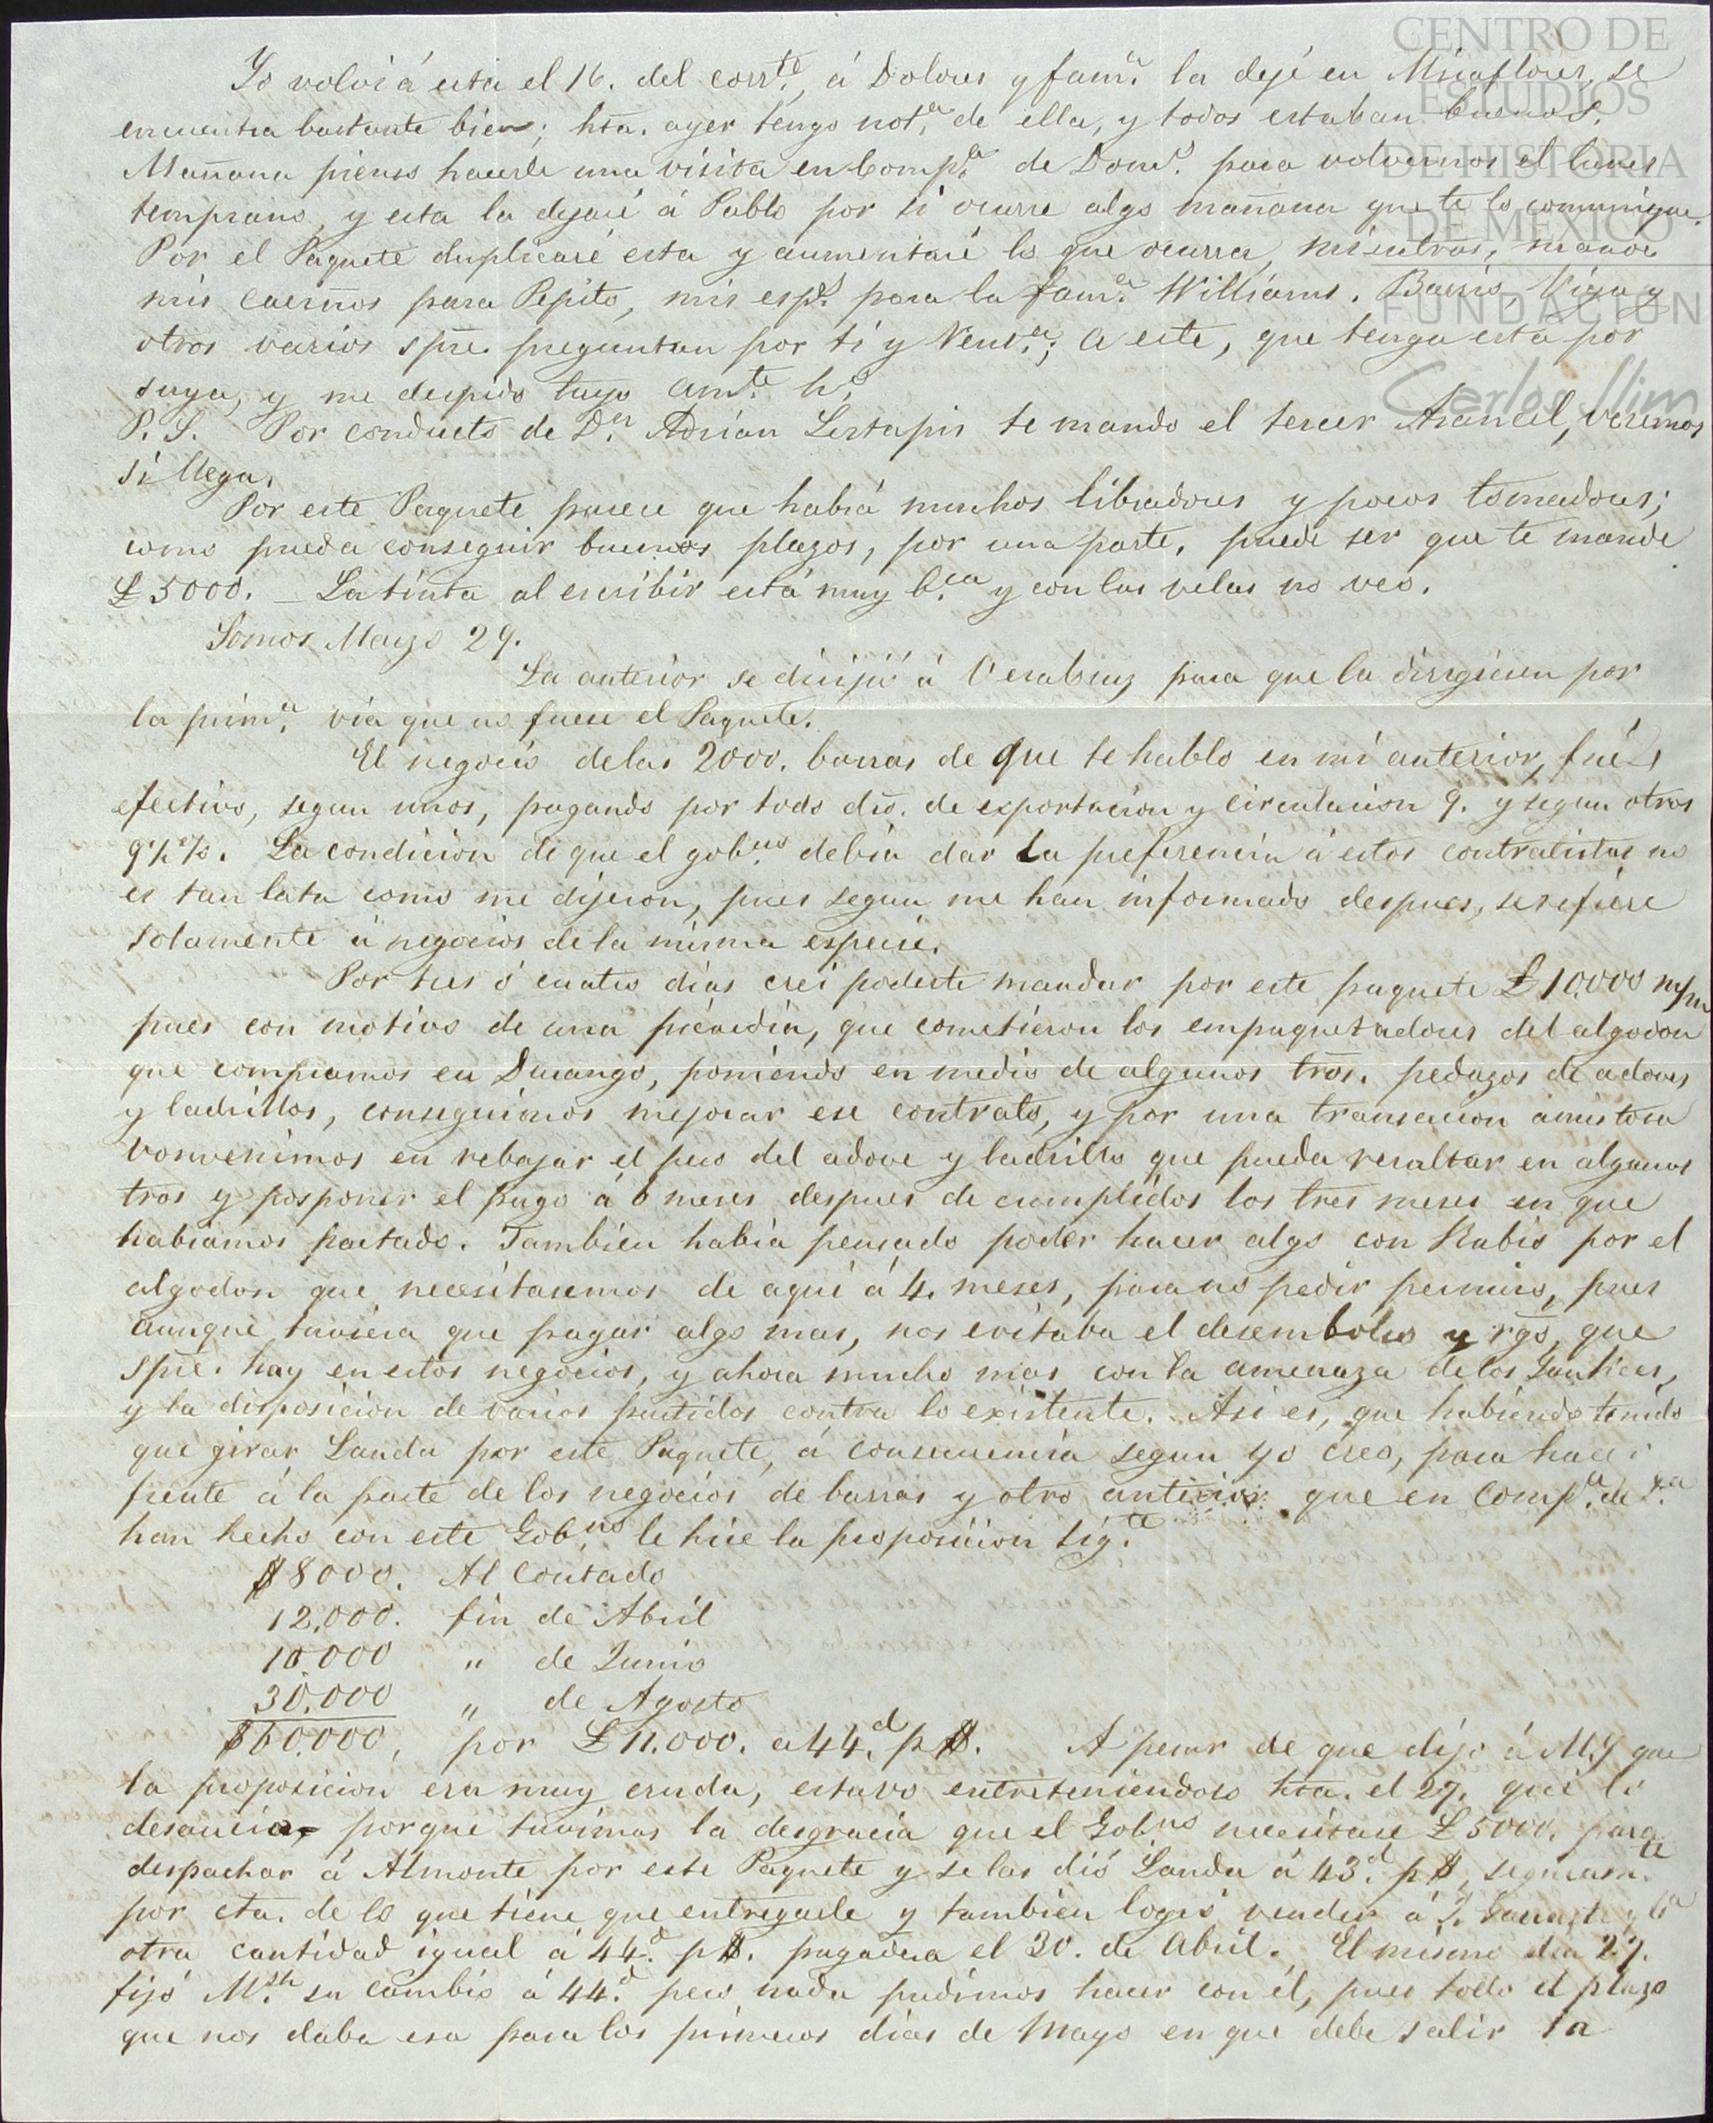 CENTRO DE
ESTUDIOS
DE HISTORIA
DE MEXICO
FUNDACION
Carlos Slim
Yo volví á esta el 16. del corrte, á Dolores y fama. la dejé en Miraflores, se
encuentra bastante bien; hta. ayer tengo nota. de ella, y todos estaban buenos.
Mañana pienso hacerle una visita en Compa. de Domo. para volvernos el lunes
temprano, y esta la dejaré á Pablo por si ocurre algo mañana que te lo comunique.
Por el Paquete duplicaré esta y aumentaré lo que ocurra, mientras,
mis cariños para Pepito, mis esps. para la fama. Williams.
otros varios spre. preguntan por ti y Venta.; á este, que tenga esta por
suya, y me despido tuyo amte. ho.
P. S. Por conducto de Dn. Adrian Lestapis te mando el tercer Arancel, veremos
si llega.
Por este Paquete parece que habrá muchos libradores y pocos tomadores;
como pueda conseguir buenos plazos, por una parte, puede ser que te mande
£ 5000. _ La tinta al escribir está muy bca. y con las velas no veo.
Somos Marzo 29.
La anterior se dirijió á Veracruz para que la dirigiesen por
la prima. via que no fuese el Paquete.
El negocio delas 2000. barras de que te hablo en mi anterior, fué
efectivo, segun unos, pagando por todo dro. de exportacion y circulacion 9. y segun otros
9½%. La condicion de que el gobno. debia dar la preferencia á estos contratistas no
es tan lata como me dijeron, pues segun me han informado despues, se refiere
solamente á negocios de la misma especie.
Por tres ó cuatro dias crei poderte mandar por este paquete £ 10.000 m/m
pues con motivo de una picardia, que cometieron los empaquetadores del algodon
que compramos en Durango, poniendo en medio de algunos tros. pedazos de adoves
y ladrillos, conseguimos mejorar ese contrato, y por una transacion amistosa
convenimos en rebajar el peso del adove y ladrillo que pueda resultar en algunos
tros y posponer el pago á 6 meses despues de cumplidos los tres meses en que
habiamos pactado. Tambien habia pensado poder hacer algo con Rubio por el
algodon que necesitasemos de aqui á 4. meses, para no pedir permiso, pues
aunque tuviera que pagar algo mas, nos evitaba el desembolso y rgos, que
spre. hay en estos negocios, y ahora mucho mas con la amenaza de los Yankies,
y la disposicion de varios partidos contra lo existente. Asi es, que habiendo tenido
que girar Landa por este Paquete, á consecuencia segun yo creo, para hacer
frente á la parte de los negocios de barras y otro anterior que en Compa. de
han hecho con este Gobno. le hice la proposicion sigte.
$ 8000. Al Contado
12.000. fin de Abril
10.000 " de Junio
30.000 " de Agosto
$60.000, por £ 11.000. a 44d. p $. A pesar de que dijo á MG que
la proposicion era muy cruda, estuvo entreteniendolo hta. el 27. que lo
desaucia, porque tuvimos la desgracia que el Gobno necesitase £ 5000. para
despachar á Almonte por este Paquete y se las dió Landa á 43d. p $, seguramte.
por cta. de lo que tiene que entregarle y tambien logró vender á
otra cantidad igual á 44d. p $. pagadera el 30. de Abril. El mismo dia 27.
fijó Msh. su cambio á 44d. pero nada pudimos hacer con él, pues todo el plazo
que nos daba era para los primeros dias de Mayo en que debe salir la